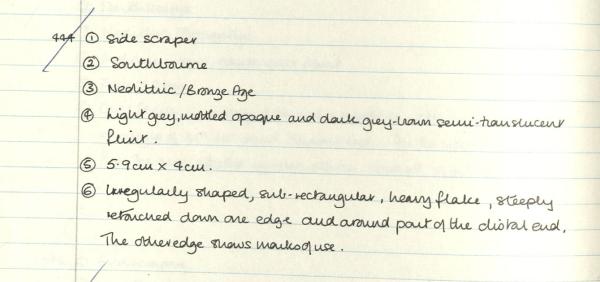 444 ① Side scraper
② Southbourne
③ Neolithic / Bronze Age
④ Light grey, mottled opaque and dark grey-brown semi-translucent
flint.
⑤ 5.9cm x 4cm.
⑥ Irregularly shaped, sub-rectangular, heavy flake, steeply
retouched down one edge and around part of the distal end.
The other edge shows marks of use.